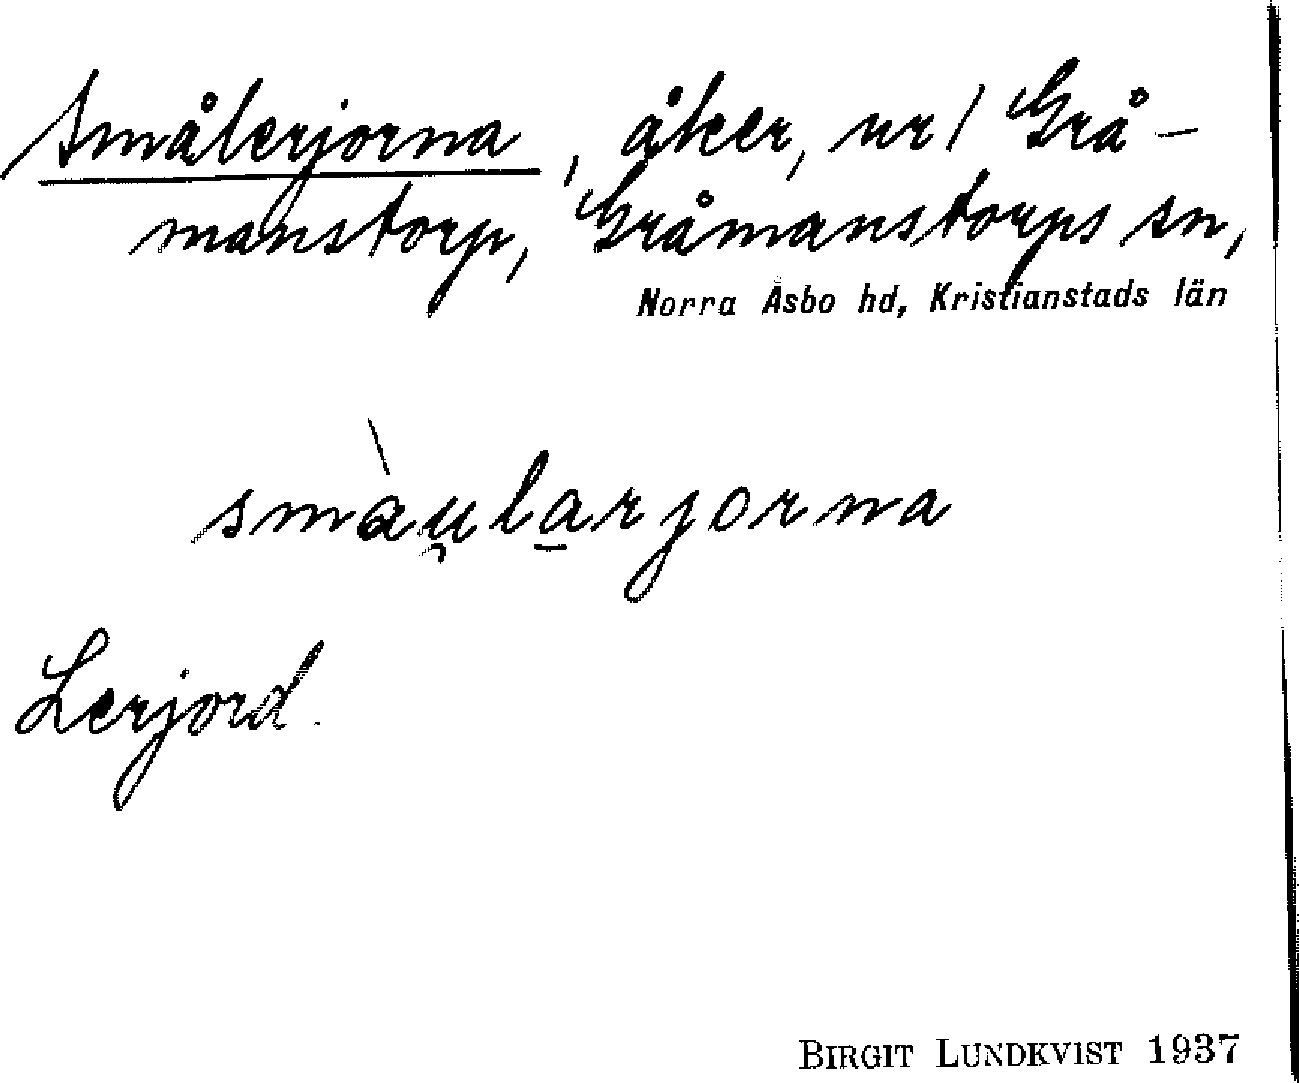 Smålerjorna, åker, nr 1 Grå-
manstorp, Gråmanstorps sn,
Norra Åsbo hd, Kristianstads län
smàu̯la̱rjorna
Lerjord.
BIRGIT LUNDKVIST 1937